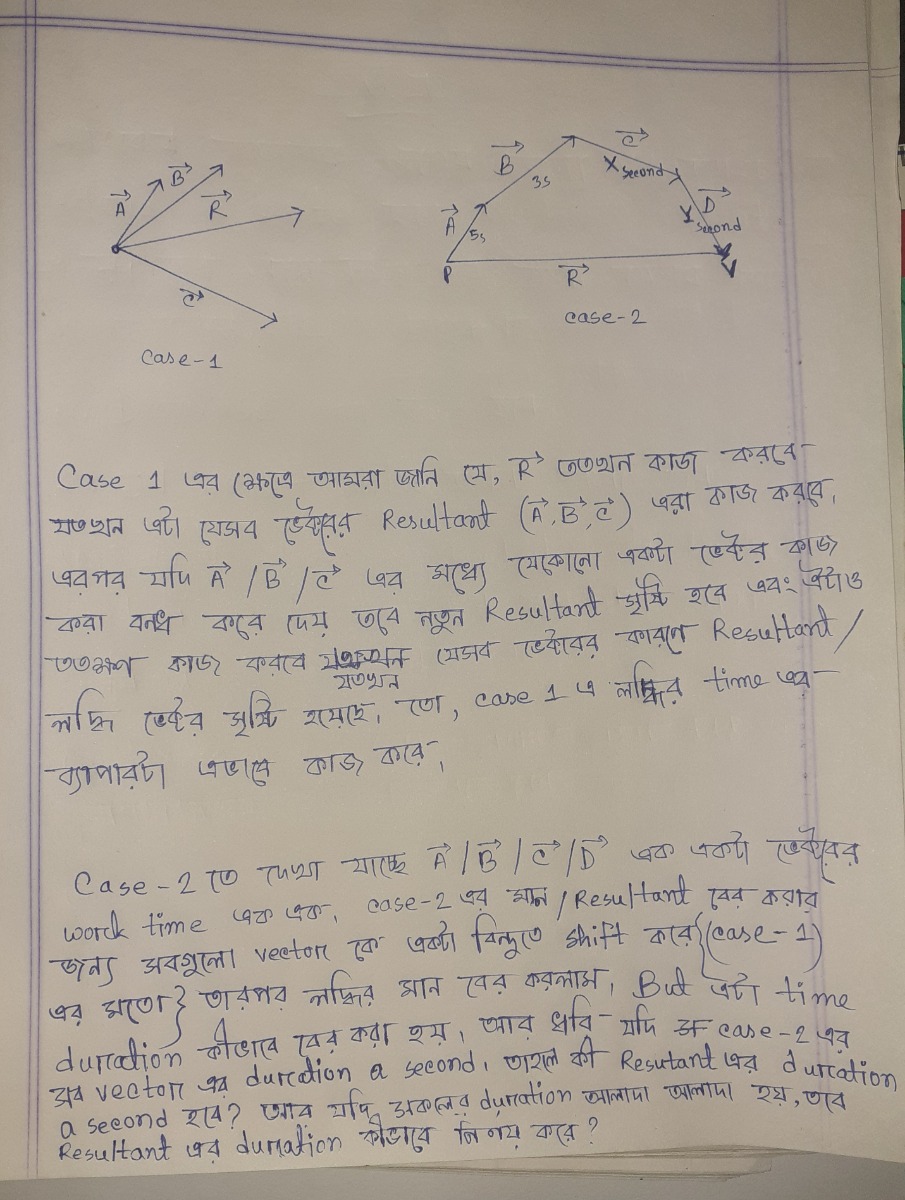 A B
R
C
Case-1
B
3s
C
X second
A
5s
D
Y second
P
R
case-2
Case 1 এর ক্ষেত্রে আমরা জানি যে, R ততখন কাজ করবে
যতখন এটা যেসব ভেক্টরের Resultant (A, B, C) এরা কাজ করবে,
এরপর যদি A / B / C এর মধ্যে যেকোনো একটা ভেক্টর কাজ
করা বন্ধ করে দেয় তবে নতুন Resultant সৃষ্টি হবে এবং এটাও
ততক্ষণ কাজ করবে যতখন যেসব ভেক্টরের কারণে Resultant /
লব্ধি ভেক্টর সৃষ্টি হয়েছে, তো, case 1 এ লব্ধির time এর
ব্যাপারটা এভাবে কাজ করে,
Case-2 তে দেখা যাচ্ছে A / B / C / D এক একটা ভেক্টরের
work time এক এক, case-2 এর মান / Resultant বের করার
জন্য সবগুলো vector কে একটা বিন্দুতে shift করে {(case-1)
এর মতো} তারপর লব্ধির মান বের করলাম, But এটা time
duration কীভাবে বের করা হয়, আর ধরি যদি case-2 এর
সব vector এর duration a second, তাহলে কী Resutant এর duration
a second হবে? আর যদি সকলের duration আলাদা আলাদা হয়, তবে
Resultant এর duration কীভাবে নির্ণয় করে?